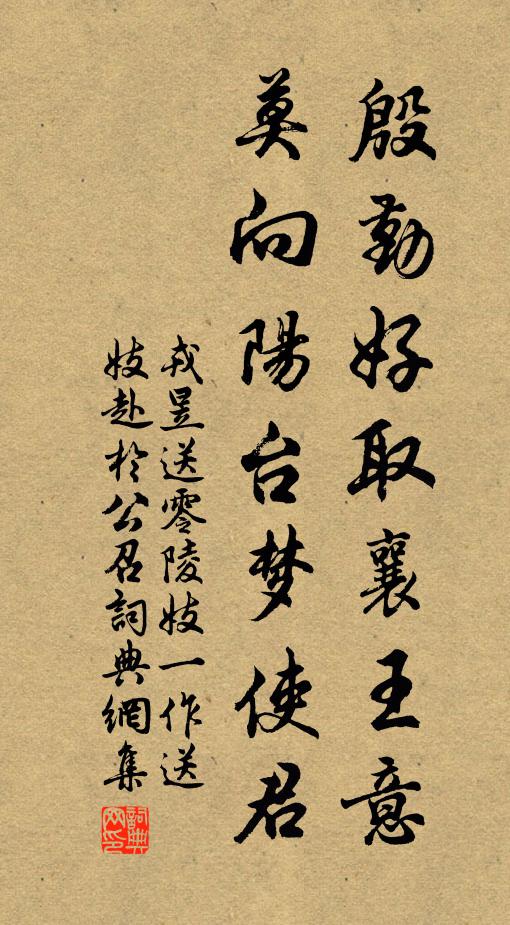 殷勤好取襄王意
莫向陽台梦使君
戎昱送零陵妓一作送
妓赴於公召詞典網集
詞典网印